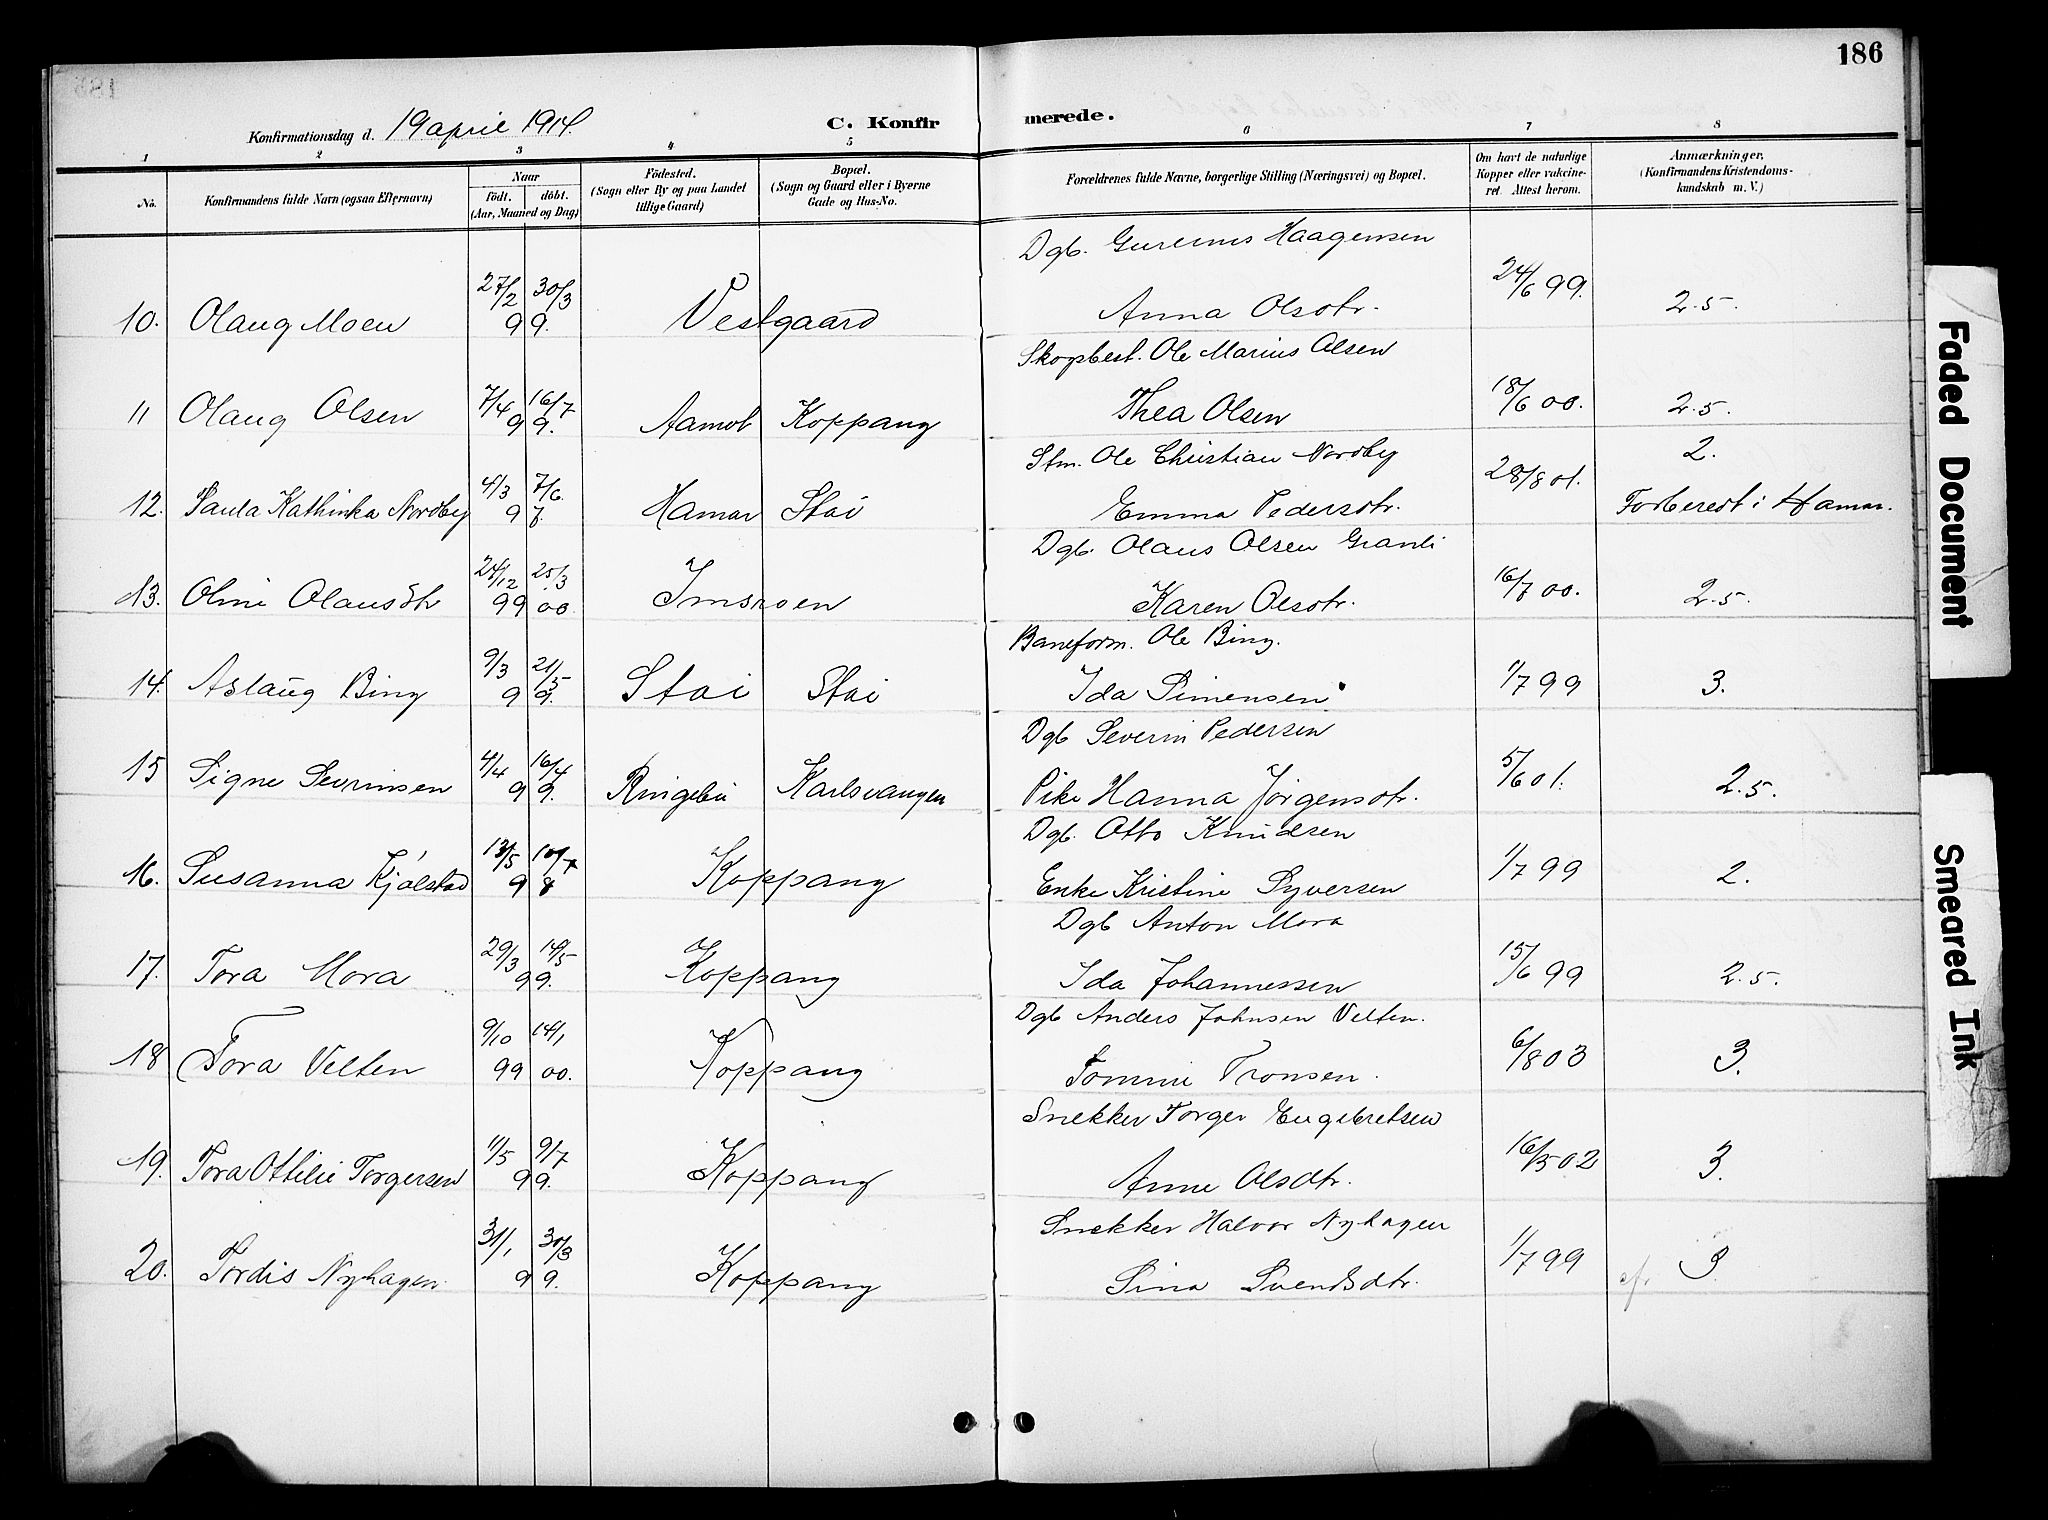 186
Konfirmationsdag d. 19 april 1914.
C. Konfirmerede.
1 2 3 4 5 6 7 8
No.
Konfirmandens fulde Navn (ogsaa Efternavn)
Naar
födt. döbt.
(Aar, Maaned og Dag)
Födested.
(Sogn eller By og paa Landet
tillige Gaard)
Bopæl.
(Sogn og Gaard eller i Byerne
Gade og Hus-No.
Forældrenes fulde Navne, borgerlige Stilling (Næringsvei) og Bopæl.
Om havt de naturlige
Kopper eller vakcine-
ret. Attest herom.
Anmærkninger.
(Konfirmandens Kristendoms-
kundskab m. V.)
Dgb. Haagensen
10. Olaug Moen 27/2 30/3 99. Vestgaard Anna Olsdtr. 24/6 99. 2.5.
Skogbest. Ole Marius Olsen
11 Olaug Olsen 7/4 16/7 99. Aamot Koppang Thea Olsen 18/6 00. 2.5.
Stm. Ole Christian Nordby 2.
12. Paula Kathinka Nordby 4/3 7/6 97. Hamar Stai Emma Pedersdtr. 28/8 01. Forberedt i Hamar.
Dgb. Olaus Olsen Granli
13. Oline Olausdtr 24/12 99 25/3 00. Imsroen Karen Olsdtr. 16/7 00. 2.5.
Baneform. Ole Bing.
14. Aslaug Bing 9/3 21/5 99. Stai Stai Ida Simensen. 1/7 99 3.
Dgb Severin Pedersen
15 Signe Sevrinsen 4/4 16/4 99. Ringebu Karlsvangen Pike Hanna Jörgensdtr. 5/6 01. 2.5.
Dgb. Otto Knudsen
16. Susanna Kjølstad 13/5 10/7 98 Koppang Enke Kristine Syversen 1/7 99 2.
Dgb Anton Mora
17. Tora Mora 29/3 14/5 99. Koppang Ida Johannessen 15/6 99 2.5.
Dgb Anders Johnsen Velten.
18 Tora Velten 9/10 99 14/1 00. Koppang Tronsen. 6/8 03 3.
Snekker Torger Engebretsen
19. Tora Ottilie Torgersen 11/5 9/7 99. Koppang Anne Olsdtr. 16/5 02 3.
Snekker Halvor Nyhagen
20. Tordis Nyhagen 31/1 30/3 99. Koppang Sina Svendsdtr. 1/7 99 3
Faded Document
Smeared Ink